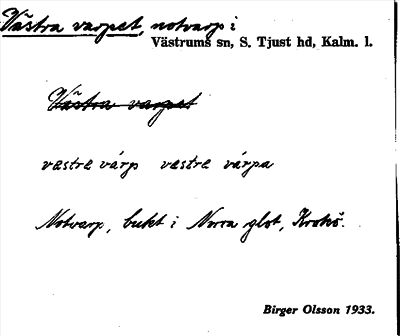 Västra varpet, notvarp i
Västrums sn, S. Tjust hd, Kalm. l.
Västra varpet
vastre várp vastre várpa
Notvarp, bukt i Norra glot, Krokö.
Birger Olsson 1933.